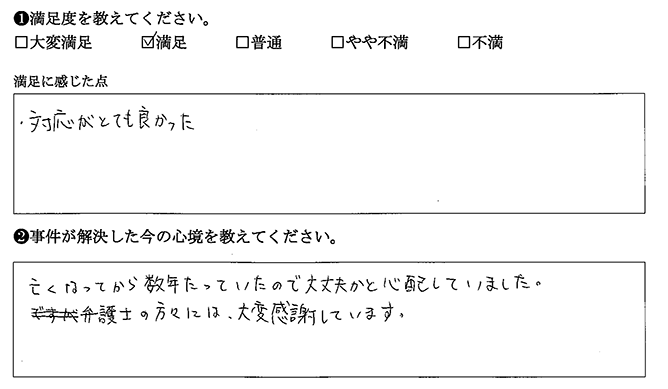 ❶満足度を教えてください。
□大変満足 ☑満足 □普通 □やや不満 □不満
満足に感じた点
・対応がとても良かった
❷事件が解決した今の心境を教えてください。
亡くなってから数年たっていたので大丈夫かと心配していました。
ですが弁護士の方々には、大変感謝しています。